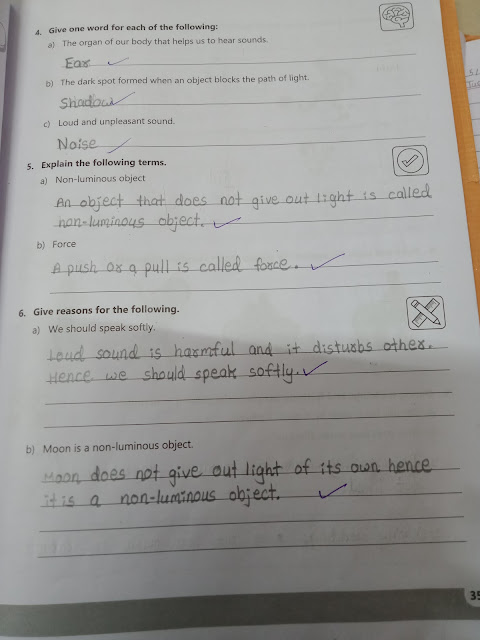 4. Give one word for each of the following:
a) The organ of our body that helps us to hear sounds.
Ear
b) The dark spot formed when an object blocks the path of light.
Shadow
c) Loud and unpleasant sound.
Noise
5. Explain the following terms.
a) Non-luminous object
An object that does not give out light is called
non-luminous object.
b) Force
A push or a pull is called force.
6. Give reasons for the following.
a) We should speak softly.
Loud sound is harmful and it disturbs other.
Hence we should speak softly.
b) Moon is a non-luminous object.
Moon does not give out light of its own hence
it is a non-luminous object.
35